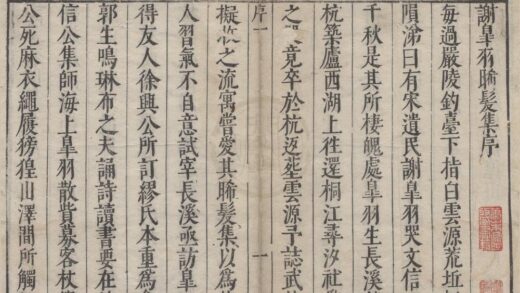 謝皐羽晞髮集序
每過嚴陵釣臺下指白雲源荒坵
隕涕曰有宋遺民謝皐羽哭文信
千秋是其所棲魄處皐羽生長溪
杭築廬西湖上徃還桐江尋汐社
之 竟卒於杭返塟雲源予誌武
序一
擬 之流寓嘗愛其晞髮集以爲
人習氣不自意試宰長溪亟訪皐
得友人徐興公所訂繆氏本重爲
郭生鳴琳布之夫誦詩讀書要在
信公集師海上皐羽散貲募客杖
公死麻衣繩履徬徨山澤間所觸